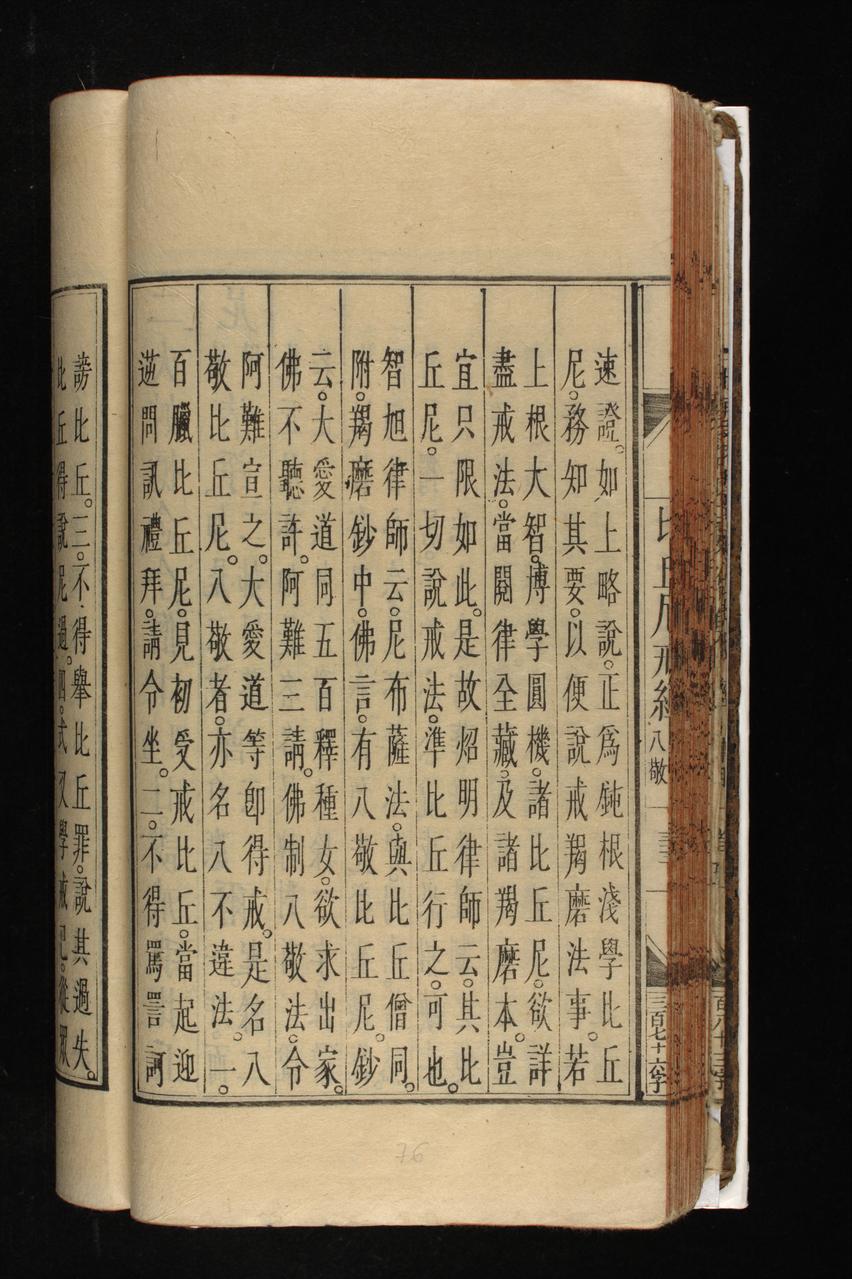 速證。如上略說。正爲鈍根淺學比丘
尼。務知其要。以便說戒羯磨法事。若
上根大智。博學圓機。諸比丘尼。欲詳
盡戒法。當閱律全藏。及諸羯磨本。豈
宜只限如此。是故炤明律師云。其比
丘尼。一切說戒法。準比丘行之。可也。
智旭律師云。尼布薩法。與比丘僧同。
附。羯磨鈔中。佛言。有八敬比丘尼。鈔
云。大愛道同五百釋種女。欲求出家。
佛不聽許。阿難三請。佛制八敬法。令
阿難宣之。大愛道等卽得戒。是名八
敬比丘尼。八敬者。亦名八不違法。一。
百臘比丘尼。見初受戒比丘。當起迎
逆問訊禮拜。請令坐。二。不得罵詈訶
謗比丘。三。不得舉比丘罪。說其過失。
比丘得說尼過。四。式叉學戒已。從眾
比丘尼戒經 八敬
三百七十六字
76